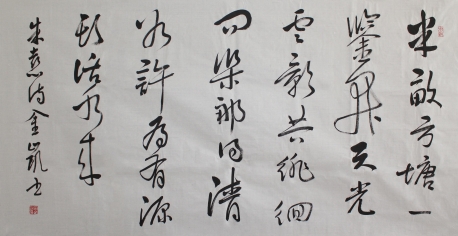 半畝方塘一
鑒開天光
雲影共徘徊
問渠那得清
如許為有源
頭活水來
朱熹诗金书